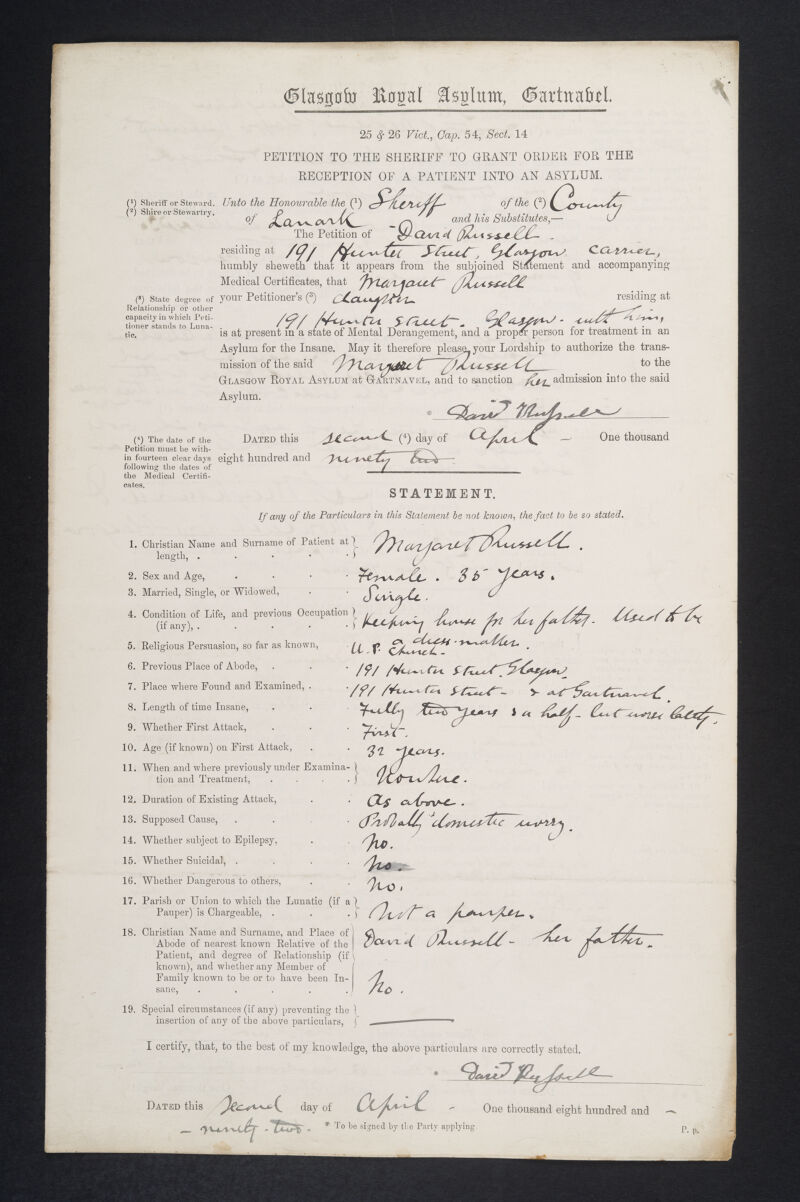 Glasgow Royal Asylum, Gartnabel.
25 & 26 Vict., Cap. 54, Sect. 14
PETITION TO THE SHERIFF TO GRANT ORDER FOR THE
RECEPTION OF A PATIENT INTO AN ASYLUM.
(¹) Sheriff or Steward.
(²) Shire or Stewartry.
Unto the Honourable the (¹) Sheriff of the (²) County
of Lanark and his Substitutes,—
The Petition of David Russell.
residing at 191 Hunter Street, Glasgow carrier,
humbly sheweth that it appears from the subjoined Statement and accompanying
Medical Certificates, that Margaret Russell
(³) State degree of
Relationship or other
capacity in which Peti-
tioner stands to Luna-
tic.
your Petitioner's (³) daughter residing at
191 Hunter Street. Glasgow. with him,
is at present in a state of Mental Derangement, and a proper person for treatment in an
Asylum for the Insane. May it therefore please your Lordship to authorize the trans-
mission of the said Margaret Russell to the
GLASGOW ROYAL ASYLUM at GARTNAVEL, and to sanction her admission into the said
Asylum.
* David Russell
(⁴) The date of the
Petition must be with-
in fourteen clear days
following the dates of
the Medical Certifi-
cates.
DATED this second (⁴) day of April — One thousand
eight hundred and ninety two.
STATEMENT.
If any of the Particulars in this Statement be not known, the fact to be so stated.
1. Christian Name and Surname of Patient at
length, . . . . . Margaret Russell.
2. Sex and Age, . . . . Female. 35 years.
3. Married, Single, or Widowed, . . Single.
4. Condition of Life, and previous Occupation
(if any), . . . . . Keeping house for her father. Used to be
a dress-maker.
5. Religious Persuasion, so far as known, U.P. Church.
6. Previous Place of Abode, . . . 191 Hunter Street, Glasgow.
7. Place where Found and Examined, . . 191 Hunter Street - & at Gartnavel.
8. Length of time Insane, . . . Fully two years & a half - but worse lately.
9. Whether First Attack, . . . First.
10. Age (if known) on First Attack, . . 32 years.
11. When and where previously under Examina-
tion and Treatment, . . . . Nowhere.
12. Duration of Existing Attack, . . As above.
13. Supposed Cause, . . . . Probably domestic worry.
14. Whether subject to Epilepsy, . . No.
15. Whether Suicidal, . . . . No.
16. Whether Dangerous to others, . . No.
17. Parish or Union to which the Lunatic (if a
Pauper) is Chargeable, . . . . Not a pauper.
18. Christian Name and Surname, and Place of
Abode of nearest known Relative of the
Patient, and degree of Relationship (if
known), and whether any Member of
Family known to be or to have been In-
sane, . . . . . .
David Russell - her father.
No.
19. Special circumstances (if any) preventing the
insertion of any of the above particulars, —
I certify, that, to the best of my knowledge, the above particulars are correctly stated.
* David Russell
DATED this second day of April - One thousand eight hundred and —
— ninety-two. * To be signed by the Party applying
P. p.